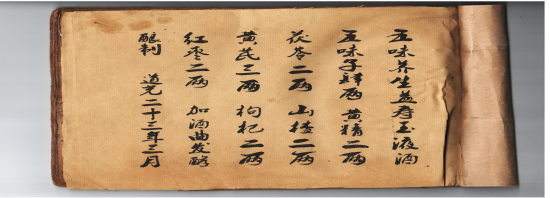 五味养生益寿玉液酒
五味子肆两 黄精二两
茯苓二两 山楂二两
黄芪三两 枸杞二两
红枣二两 加酒曲发酵
醺制 道光二十三年三月